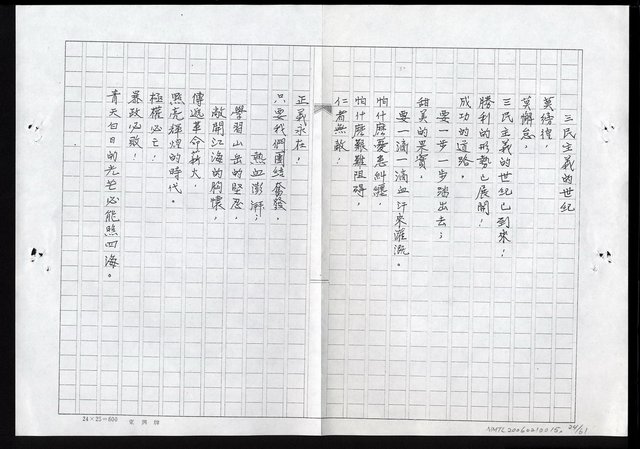 三民主義的世紀
莫徬徨，
莫懈怠，
三民主義的世紀已到來！
勝利的形勢已展開！
成功的道路，
要一步一步踏出去；
甜美的果實，
要一滴一滴血汗來灌溉。
怕什麼憂患糾纏
怕什麼艱難阻碍，
仁者無敵！
正義永在！
只要我們團結奮發，
熱血澎湃；
學習山岳的堅忍，
敞開江海的胸懷，
傳遞革命薪火，
照亮輝煌的時代。
極權必亡！
暴政必敗！
青天白日的光芒必能照四海。
24×25=600
NMTL20060210015.
24/61